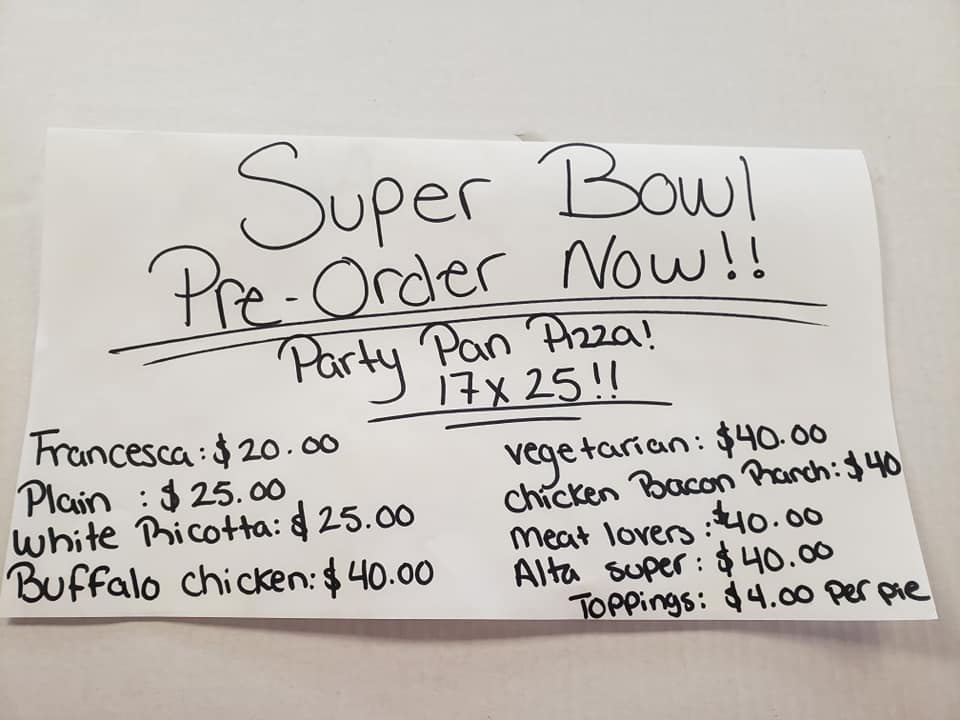 Super Bowl
Pre-Order Now!!
Party Pan Pizza!
17x25!!
Francesca: $20.00
Plain : $25.00
White Ricotta: $25.00
Buffalo chicken: $40.00
vegetarian: $40.00
chicken Bacon Ranch: $40
Meat lovers: $40.00
Alta super: $40.00
Toppings: $4.00 per pie